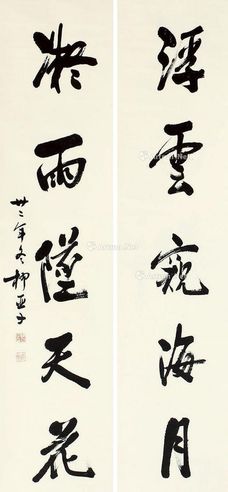 浮雲窺海月
凝雨墜天花
卅二年冬柳亞子